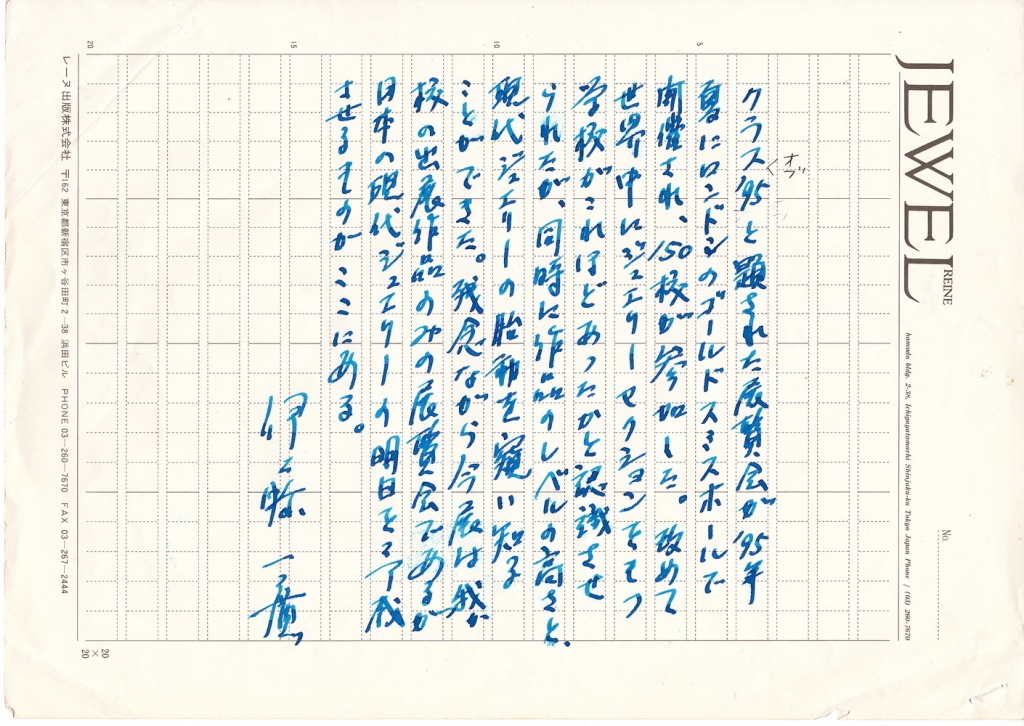 JEWEL
REINE
hamada bldg. 2-38, Ichigayatamachi Shinjuku-ku Tokyo Japan Phone / (03) 260-7670
No.
5
10
15
20
オブ
クラス'95と題された展覧会が'95年
夏にロンドンのゴールドスミスホールで
開催され、150校が参加した。改めて
世界中にジュエリーセクションをもつ
学校がこれほどあったかと認識させ
られたが、同時に作品のレベルの高さと、
現代ジュエリーの胎動を窺い知る
ことができた。残念ながら今展は我が
校の出展作品のみの展覧会であるが
日本の現代ジュエリーの明日を予感
させるものがここにある。
伊藤 一廣
レーヌ出版株式会社 〒162 東京都新宿区市ヶ谷田町2−38 浜田ビル PHONE 03―260―7670 FAX 03―267―2444
20×20